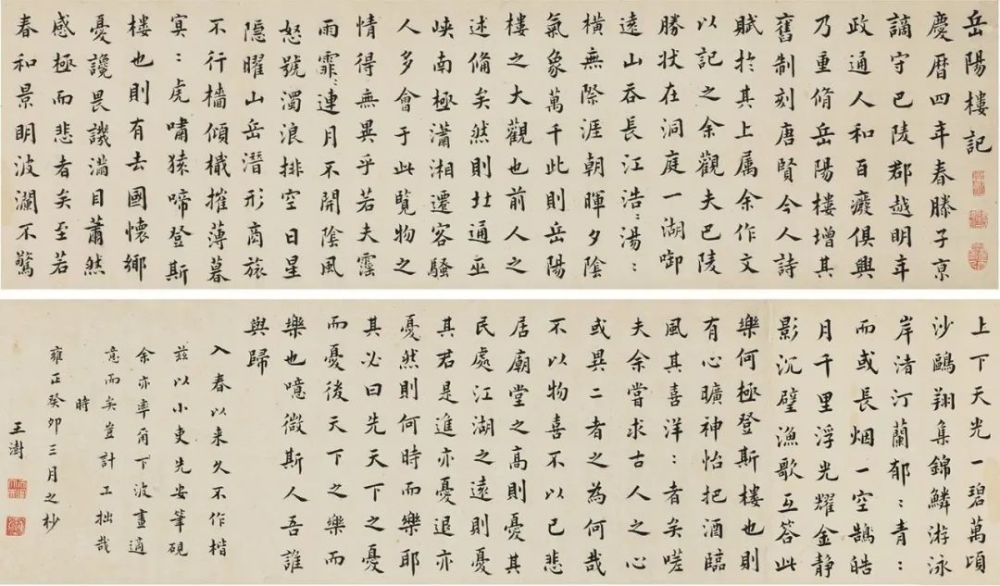 岳陽樓記
慶曆四年春滕子京
謫守巴陵郡越明年
政通人和百癈俱興
乃重脩岳陽樓增其
舊制刻唐賢今人詩
賦於其上属余作文
以記之余觀夫巴陵
勝状在洞庭一湖啣
遠山吞長江浩:湯:
橫無際涯朝暉夕陰
氣象萬千此則岳陽
樓之大觀也前人之
述備矣然則北通巫
峡南極瀟湘遷客騷
人多會于此覽物之
情得無異乎若夫霪
雨霏:連月不開陰風
怒號濁浪排空日星
隱曜山岳潛形商旅
不行檣傾檝摧薄暮
冥:虎嘯猿啼登斯
樓也則有去國懷鄉
憂讒畏譏滿目蕭然
感極而悲者矣至若
春和景明波瀾不驚
上下天光一碧萬頃
沙鷗翔集錦鱗游泳
岸渚汀蘭郁:青:
而或長烟一空鵠皓
月千里浮光耀金静
影沉璧漁歌互答此
樂何極登斯樓也則
有心曠神怡把酒臨
風其喜洋:者矣嗟
夫余嘗求古人之心
或異二者之為何哉
不以物喜不以己悲
居廟堂之高則憂其
民處江湖之遠則憂
其君是進亦憂退亦
憂然則何時而樂耶
其必曰先天下之憂
而憂後天下之樂而
樂也噫微斯人吾誰
與歸
入春以来久不作楷
兹以小吏先安筆硯
余亦率爾下波畫適
意而矣豈計工拙哉
時
雍正癸卯三月之杪
王澍